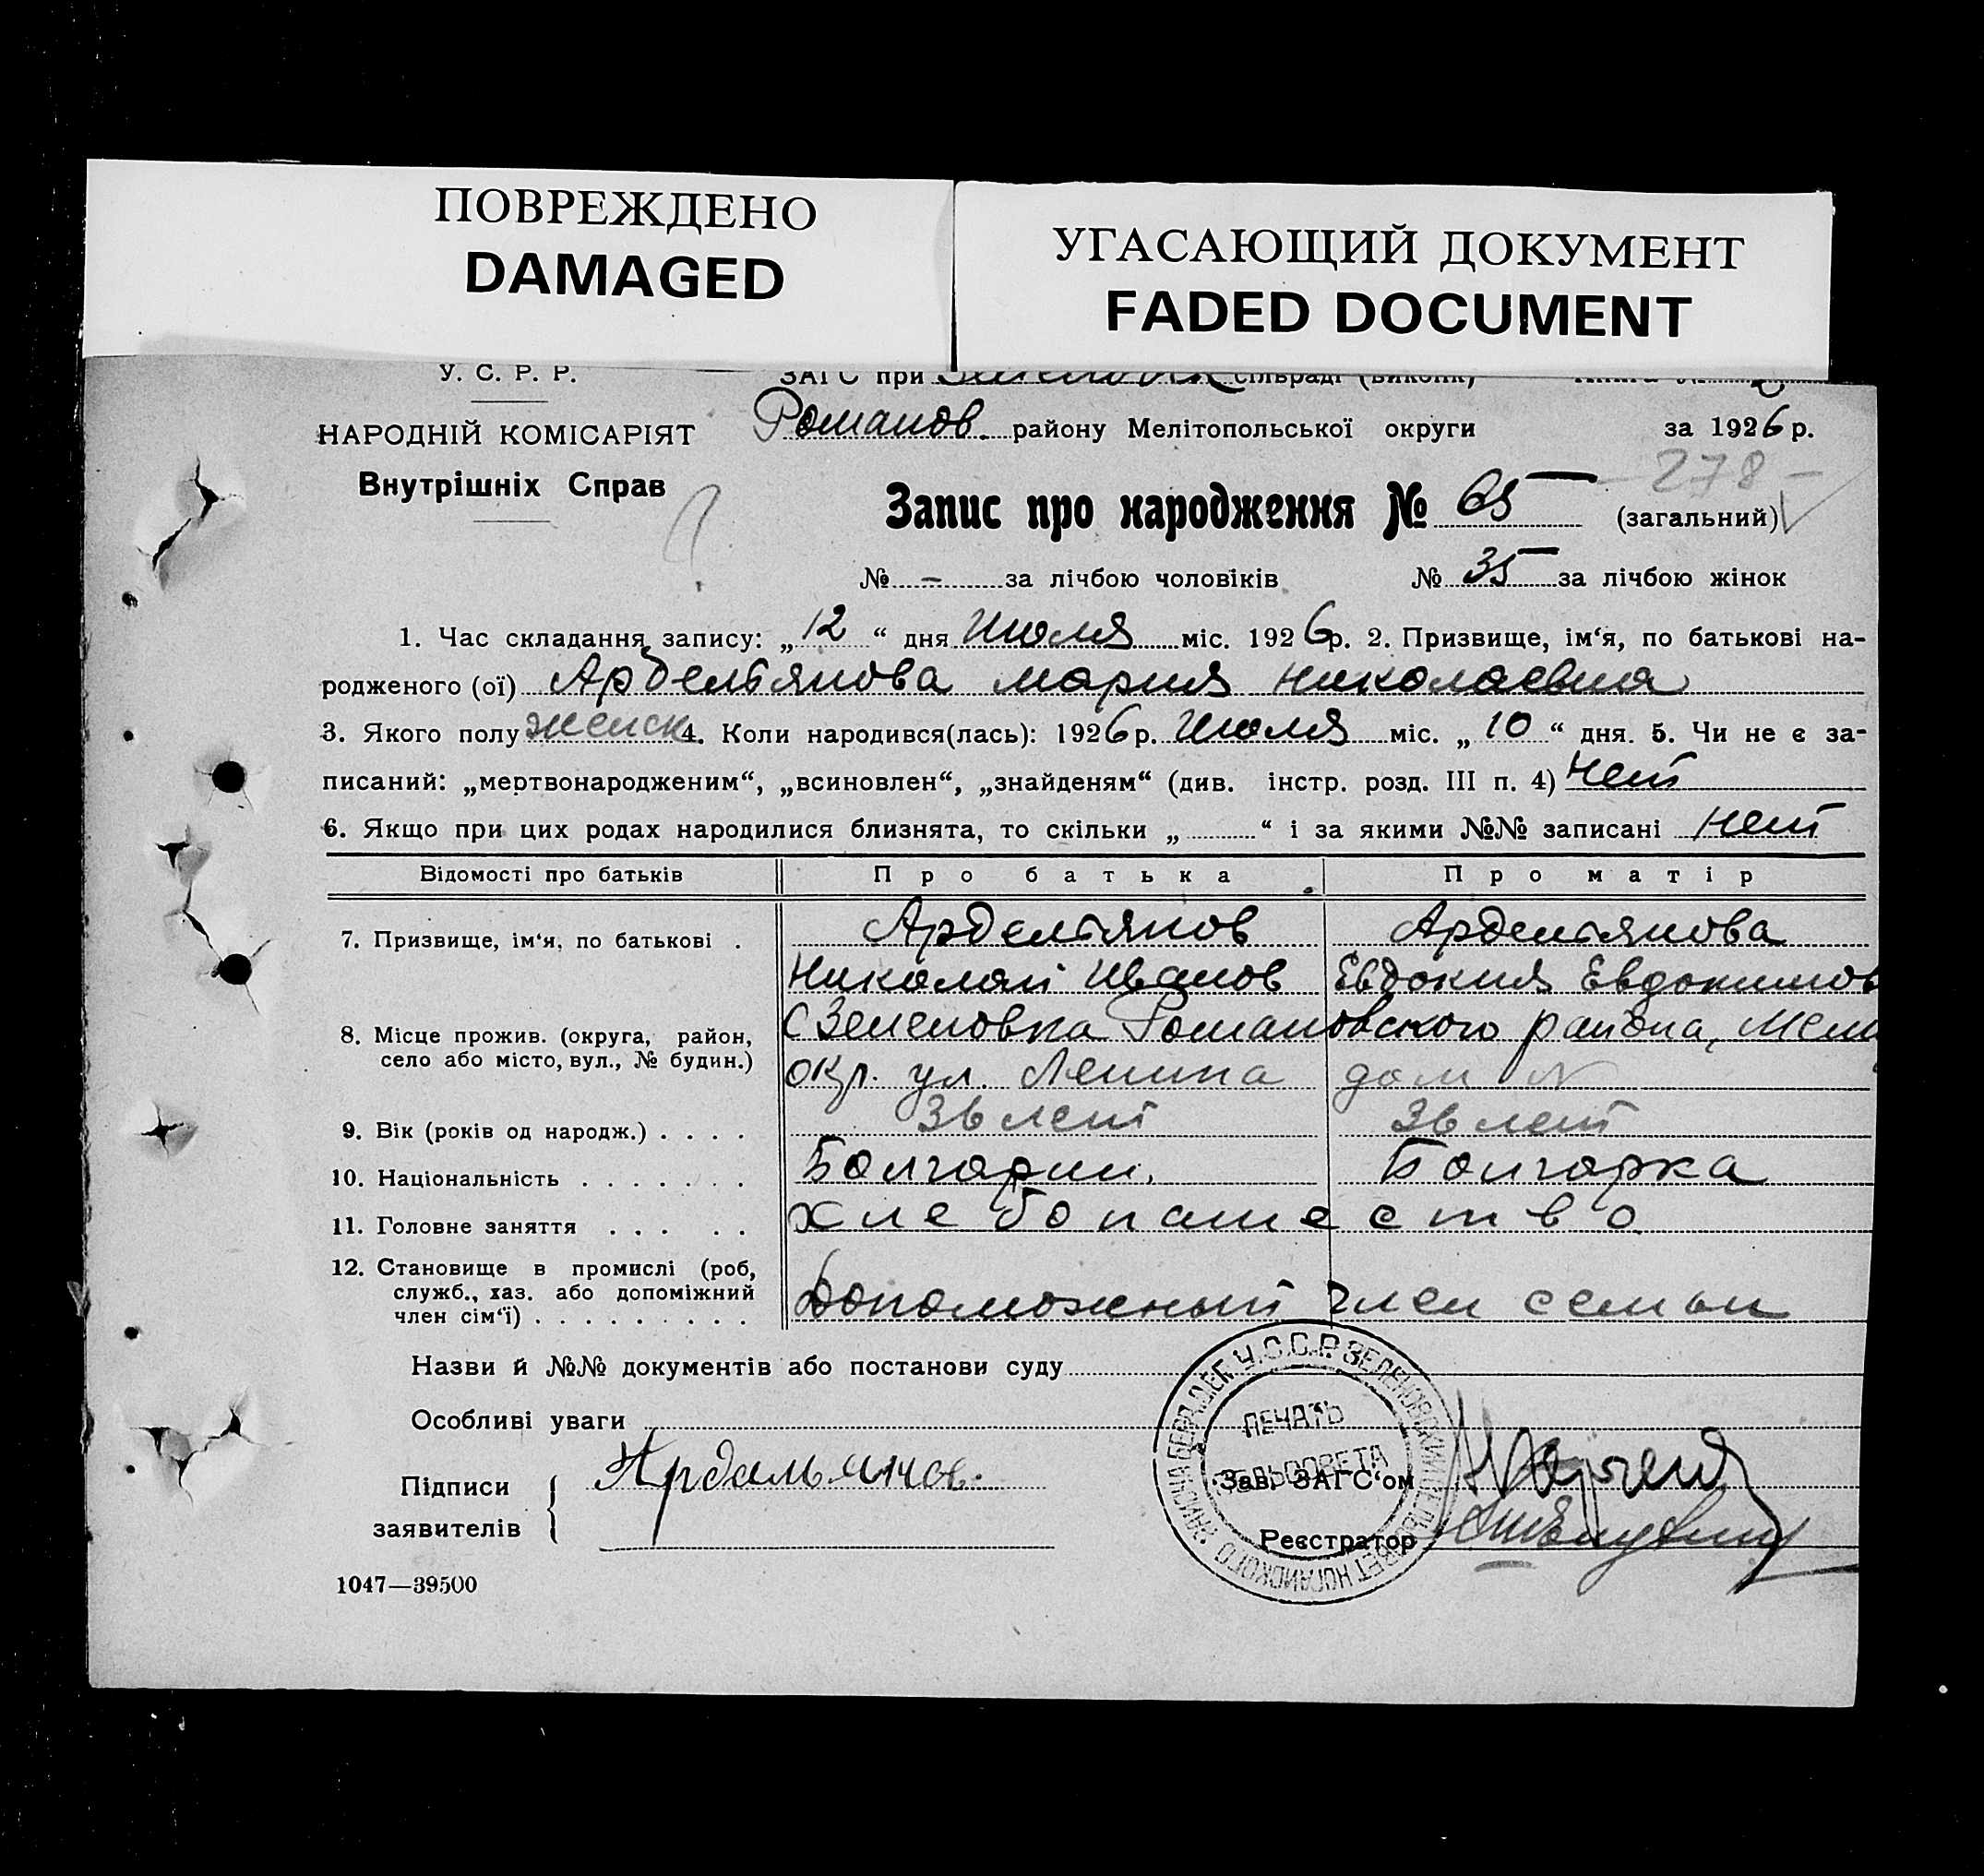 ПОВРЕЖДЕНО
DAMAGED
УГАСАЮЩИЙ ДОКУМЕНТ
FADED DOCUMENT
У. С. Р. Р.
НАРОДНІЙ КОМІСАРІЯТ
Внутрішніх Справ
ЗАГС при сільраді (виконк)
Романов. району Мелітопольської округи за 1926 р.
278
Запис про народження № 65 (загальний)
№ – за лічбою чоловіків № 35 за лічбою жінок
1. Час складання запису: „12“ дня Июля міс. 1926 р. 2. Призвище, ім‘я, по батькові на-
родженого (ої) Ардельянова Мария Николаевна
3. Якого полу женск 4. Коли народився(лась): 1926 р. Июля міс. „10“ дня. 5. Чи не є за-
писаний: „мертвонародженим“, „всиновлен“, „знайденям“ (див. інстр. розд. III п. 4) Нет
6. Якщо при цих родах народилися близнята, то скільки „ “ і за якими №№ записані нет
Відомості про батьків Про батька Про матір
7. Призвище, ім‘я, по батькові . Ардельянов Ардельянова
Николай Иванов Евдокия Евдокимов
8. Місце прожив. (округа, район, село або місто, вул., № будин.) С Зеленовка Романовского района, Мелит
окр. ул. Ленина дом N
9. Вік (років од народж.) . . . . 36 лет 36 лет
10. Національність . . . . . . . Болгарин. Болгарка
11. Головне заняття . . . . . хлебопашество
12. Становище в промислі (роб,
служб., хаз. або допоміжний
член сім‘ї) . . . . . . . . . Допоможный член семьи
Назви й №№ документів або постанови суду
Особливі уваги
Підписи
заявителів
Ардальянов.
У.С.С.Р. ЗЕЛЕНОВСКИЙ СЕЛЬСОВЕТ НОГАЙСКОГО РАЙОНА БЕРД.
ПЕЧАТЬ
СЕЛЬСОВЕТА
Зав. ЗАГС‘ом
Реєстратор
1047—39500